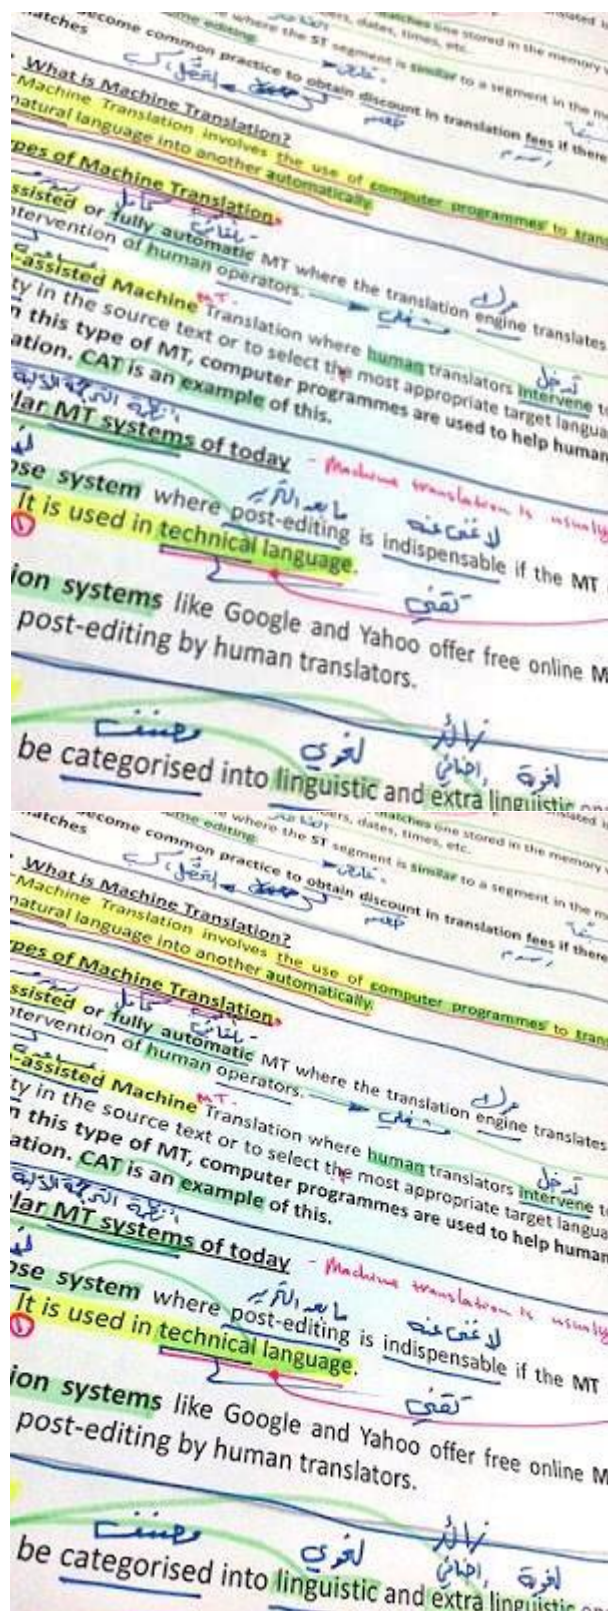 matches one stored in the memory
ers, dates, times, etc.
me editing.
where the ST segment is similar to a segment in the m
atches
become common practice to obtain discount in translation fees if there
خصم
رسوم
What is Machine Translation?
Machine Translation involves the use of computer programmes to trans
natural language into another automatically.
ypes of Machine Translation
كامل
تلقائي
ssisted or fully automatic MT where the translation engine translates
محرك
ntervention of human operators.
مشغلي
MT.
-assisted Machine Translation where human translators intervene to
تدخل
ty in the source text or to select the most appropriate target langua
n this type of MT, computer programmes are used to help human
ation. CAT is an example of this.
أنظمة الترجمة الآلية
lar MT systems of today - Machine translation is usually
ما بعد التحرير
لا غنى عنه
ose system where post-editing is indispensable if the MT
1 It is used in technical language.
تقني
ion systems like Google and Yahoo offer free online M
post-editing by human translators.
مصنف
لغوي
زائد
إضافي
لغوية
be categorised into linguistic and extra linguistic one
matches one stored in the memory
ers, dates, times, etc.
me editing.
where the ST segment is similar to a segment in the m
atches
become common practice to obtain discount in translation fees if there
خصم
رسوم
What is Machine Translation?
Machine Translation involves the use of computer programmes to trans
natural language into another automatically.
ypes of Machine Translation
كامل
تلقائي
ssisted or fully automatic MT where the translation engine translates
محرك
ntervention of human operators.
مشغلي
MT.
-assisted Machine Translation where human translators intervene to
تدخل
ty in the source text or to select the most appropriate target langua
n this type of MT, computer programmes are used to help human
ation. CAT is an example of this.
أنظمة الترجمة الآلية
lar MT systems of today - Machine translation is usually
ما بعد التحرير
لا غنى عنه
ose system where post-editing is indispensable if the MT
1 It is used in technical language.
تقني
ion systems like Google and Yahoo offer free online M
post-editing by human translators.
مصنف
لغوي
زائد
إضافي
لغوية
be categorised into linguistic and extra linguistic